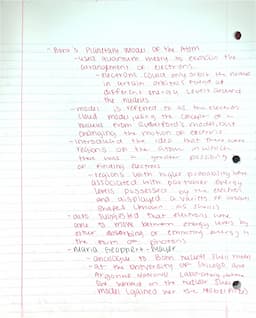 - Bohr's Planetary Model of the Atom
- used quantum theory to explain the
arrangement of electrons
- electrons could only orbit the nucleus
in certain orbitals found at
different energy levels around
the nucleus
- model is referred to as the electron
cloud model, using the concept of a
nucleus from Rutherford's model, but
changing the motion of electrons
- introduced the idea that there were
regions of the atom in which
there was a greater possibility
of finding electrons
- regions with higher probability were
associated with particular energy
levels possessed by the electrons
and displayed a variety of
shapes
- also suggested that electrons were
able to move between energy levels by
either absorbing or emitting energy in
the form of photons
- Maria Goeppert-Mayer
- to Bohr
- at the University of Chicago and
Argonne National Laboratory
the nuclear Shell
model (gained her the Nobel Prize)